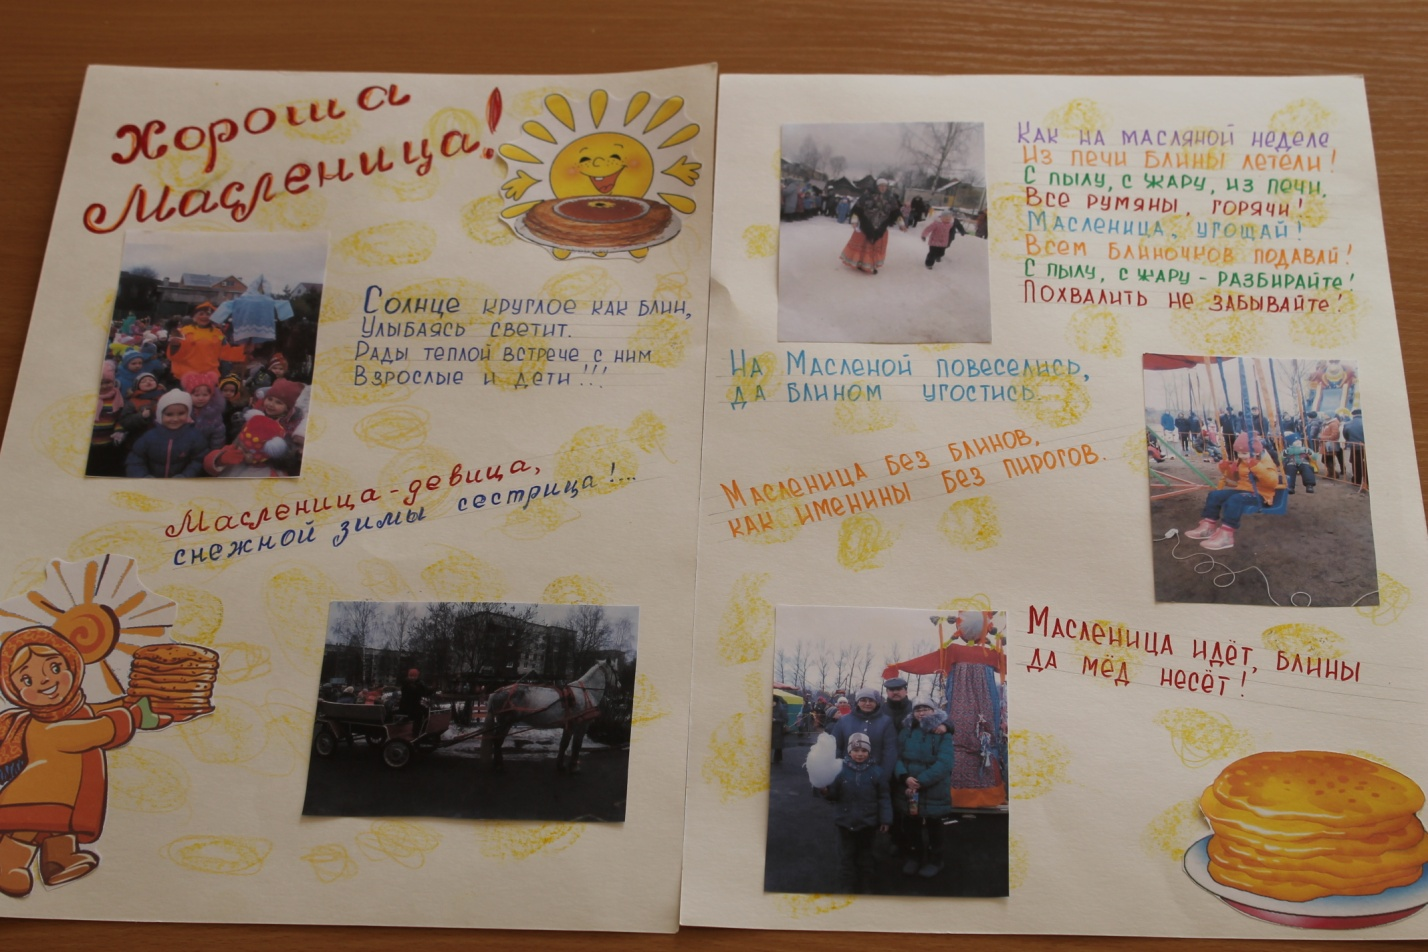 Хороша
Масленица!
Солнце круглое как блин,
Улыбаясь светит.
Рады теплой встрече с ним
Взрослые и дети!!!
Масленица-девица,
снежной зимы сестрица!...
Как на масляной неделе
Из печи блины летели!
С пылу, с жару, из печи,
Все румяны, горячи!
Масленица, угощай!
Всем блиночков подавай!
С пылу, с жару - разбирайте!
Похвалить не забывайте!
На Масленой повеселись,
да блином угостись.
Масленица без блинов,
как именины без пирогов.
Масленица идёт, блины
да мёд несёт!